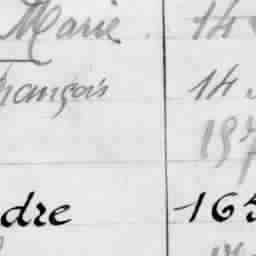 Marie. 14
françois 14
197
dre 165